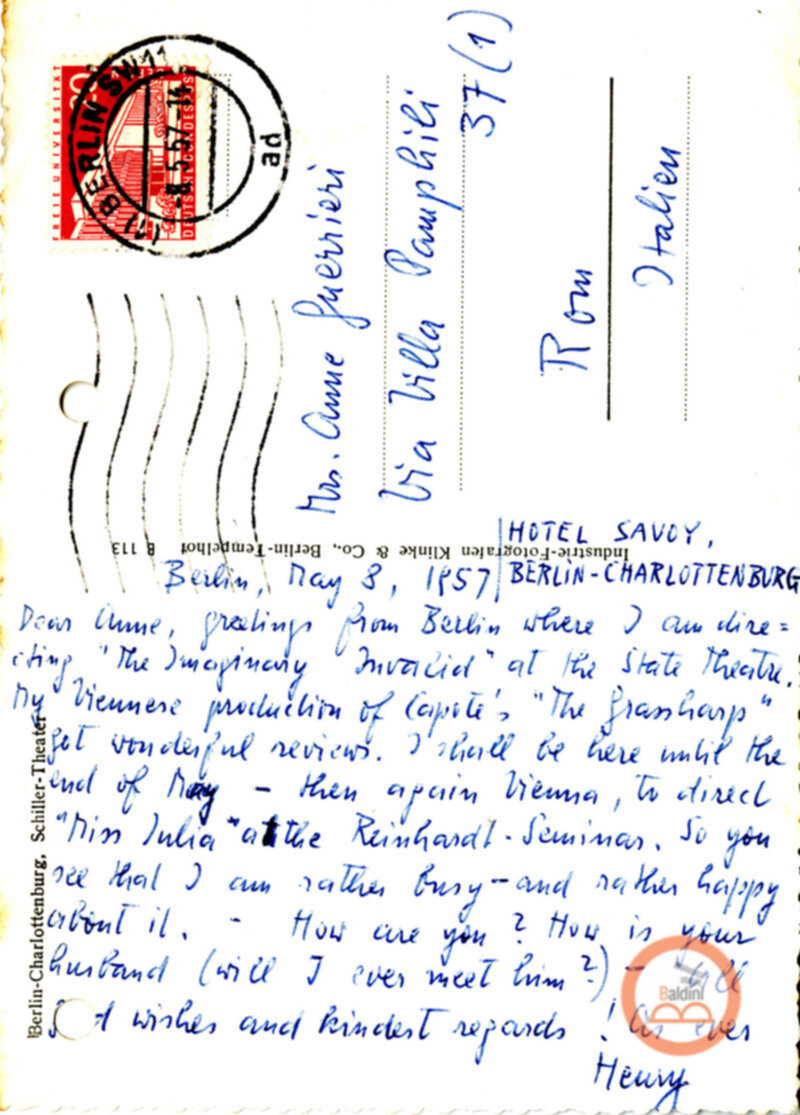 FREIE UNIVERSITÄT
20
DEUTSCHE BUNDESPOST
(1) BERLIN SW 11
-8.5.57-14
ad
Mrs. Anne Guerrieri
Via Villa Pamphili
37 (1)
Rom
Italien
Industrie-Fotografen Klinke & Co., Berlin-Tempelhof B 113
Berlin-Charlottenburg, Schiller-Theater
HOTEL SAVOY,
BERLIN-CHARLOTTENBURG
Berlin, May 8, 1957
Dear Anne, greetings from Berlin where I am dire=
cting "The Imaginary Invalid" at the State Theatre.
My Viennese production of Capote's "The Grassharp"
got wonderful reviews. I shall be here until the
end of May – then again Vienna, to direct
"Miss Julia" at the Reinhardt-Seminar. So you
see that I am rather busy – and rather happy
about it. – How are you? How is your
husband (will I ever meet him?) – All
good wishes and kindest regards! As ever
Henry
Baldini
B